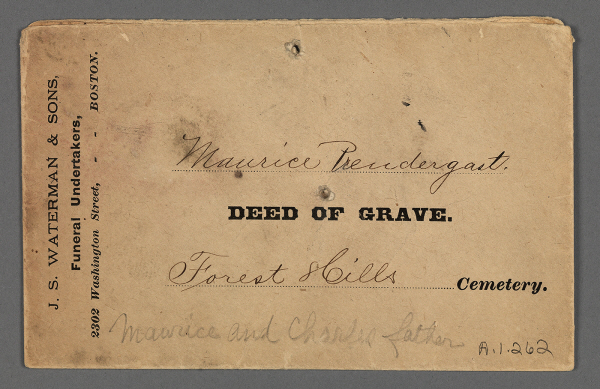 J. S. WATERMAN & SONS,
Funeral Undertakers,
2302 Washington Street, - - BOSTON.
Maurice Prendergast.
DEED OF GRAVE.
Forest Hills Cemetery.
Maurice and Charles father
A.1.262